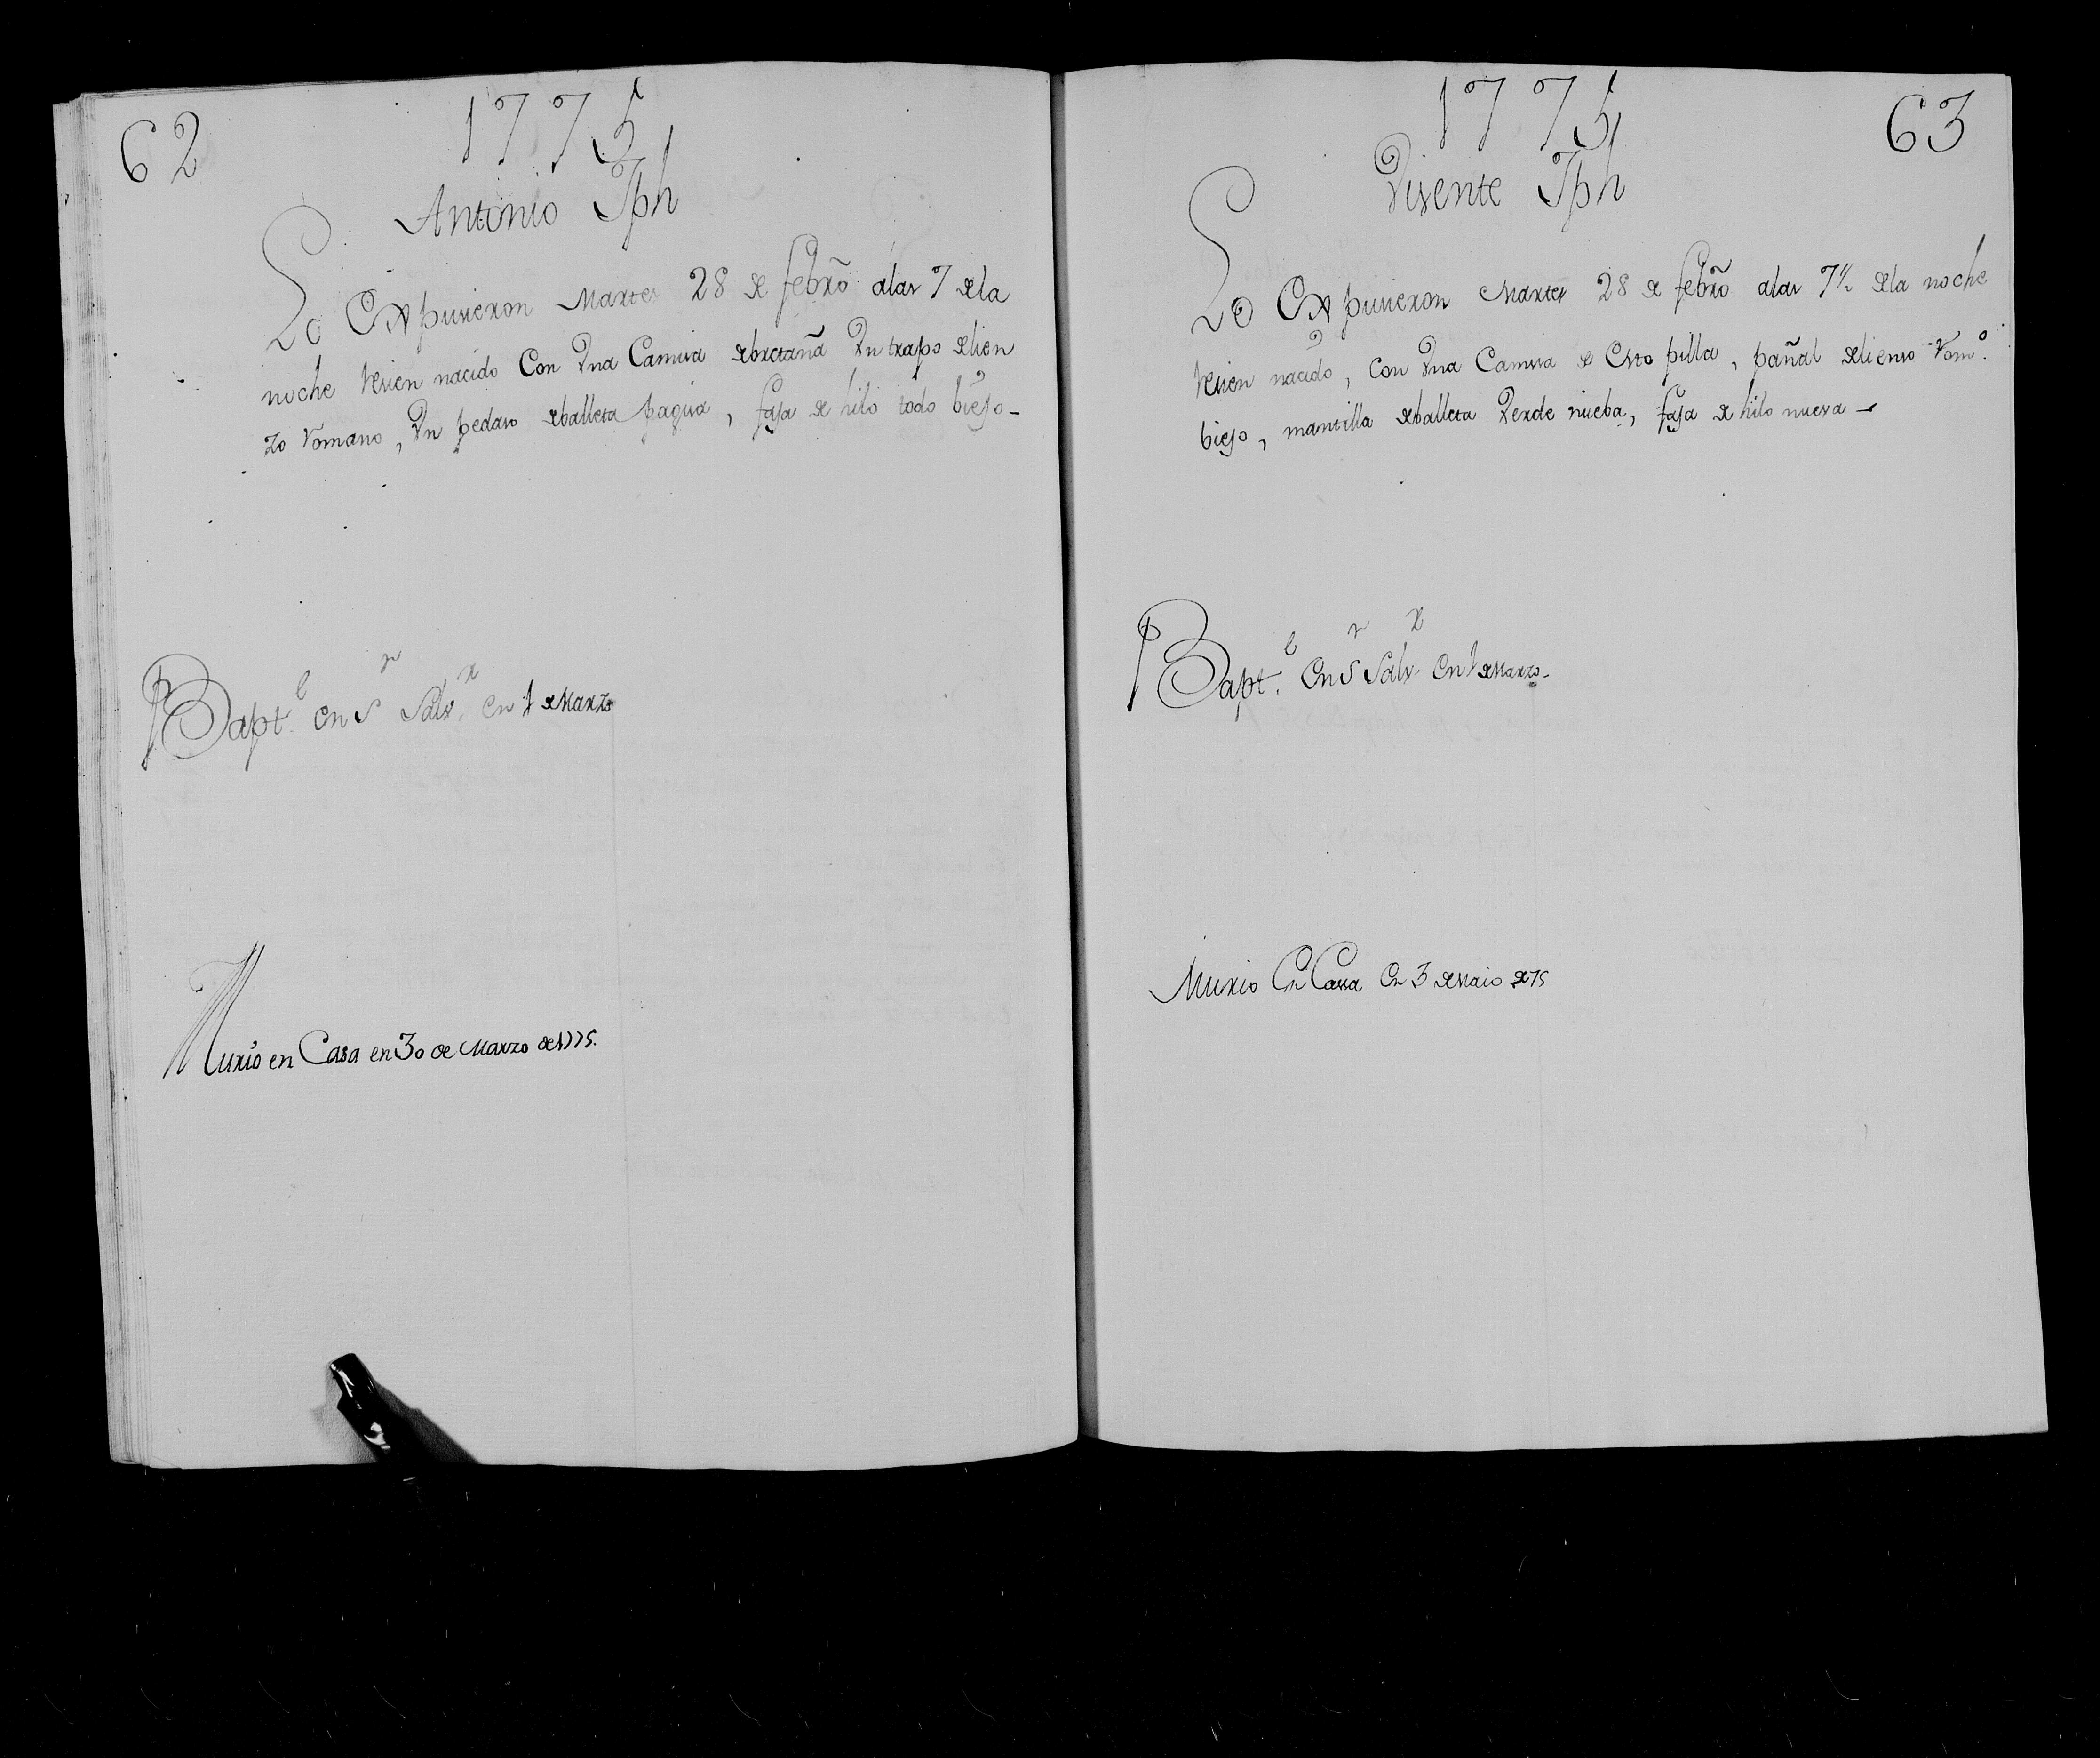 62
1775
Antonio Jph
Lo Expusieron Martes 28 de febrõ alas 7 dela
noche Resien nacido Con Vna Camisa debretaña Vn trapo delien
zo Romano, Vn pedaso deballeta pagisa, faja de hilo todo biejo-
Bapt.e en Sn Salvr. en 1 de Marzo
Murio en Casa en 30 de Marzo de 1775.
1775
63
Visente Jph
Lo Expusieron Martes 28 de febrõ alas 7½ dela noche
Resien nacido, Con Vna Camisa de Esto pilla, pañal delienso Romo.
biejo, mantilla deballeta Verde nueba, faja de hilo nueva -
Bapt.e En Sn Salvr En 1 de Marzo-
Murio En Casa En 3 de Maio de 75